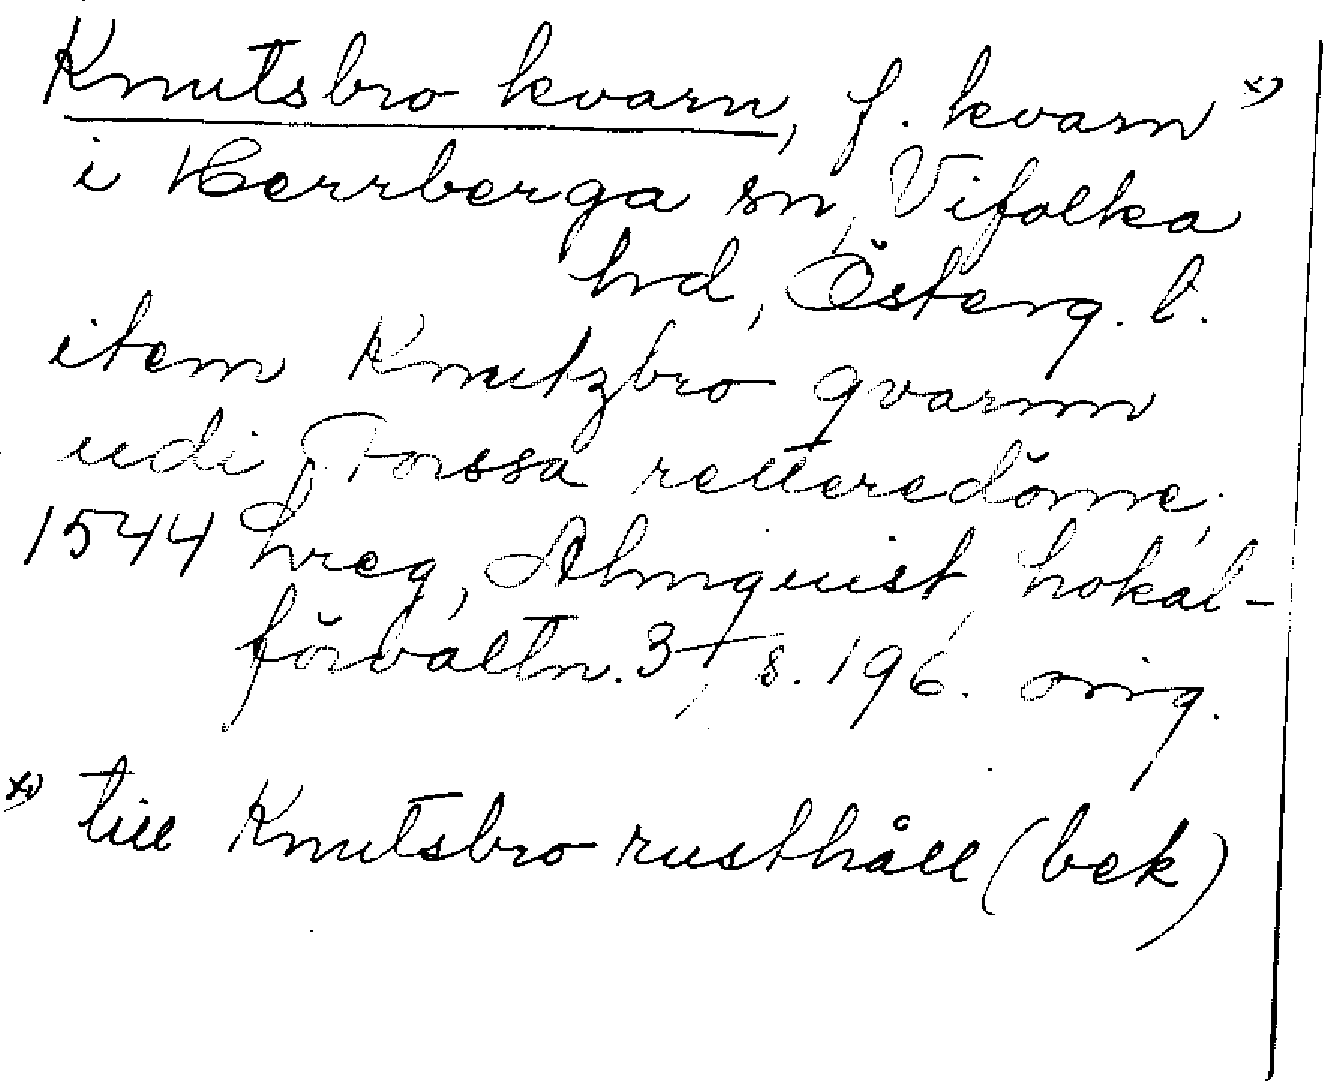 Knutsbro kvarn, f. kvarn x)
i Herrberga sn, Vifolka
hd, Österg. l.
item Knutzbro qvarnn
udi Forssa retteredöme,
1544 hreg, Almquist, Lokal-
förvaltn. 3, s. 196. orig.
x) till Knutsbro rusthåll (bek)